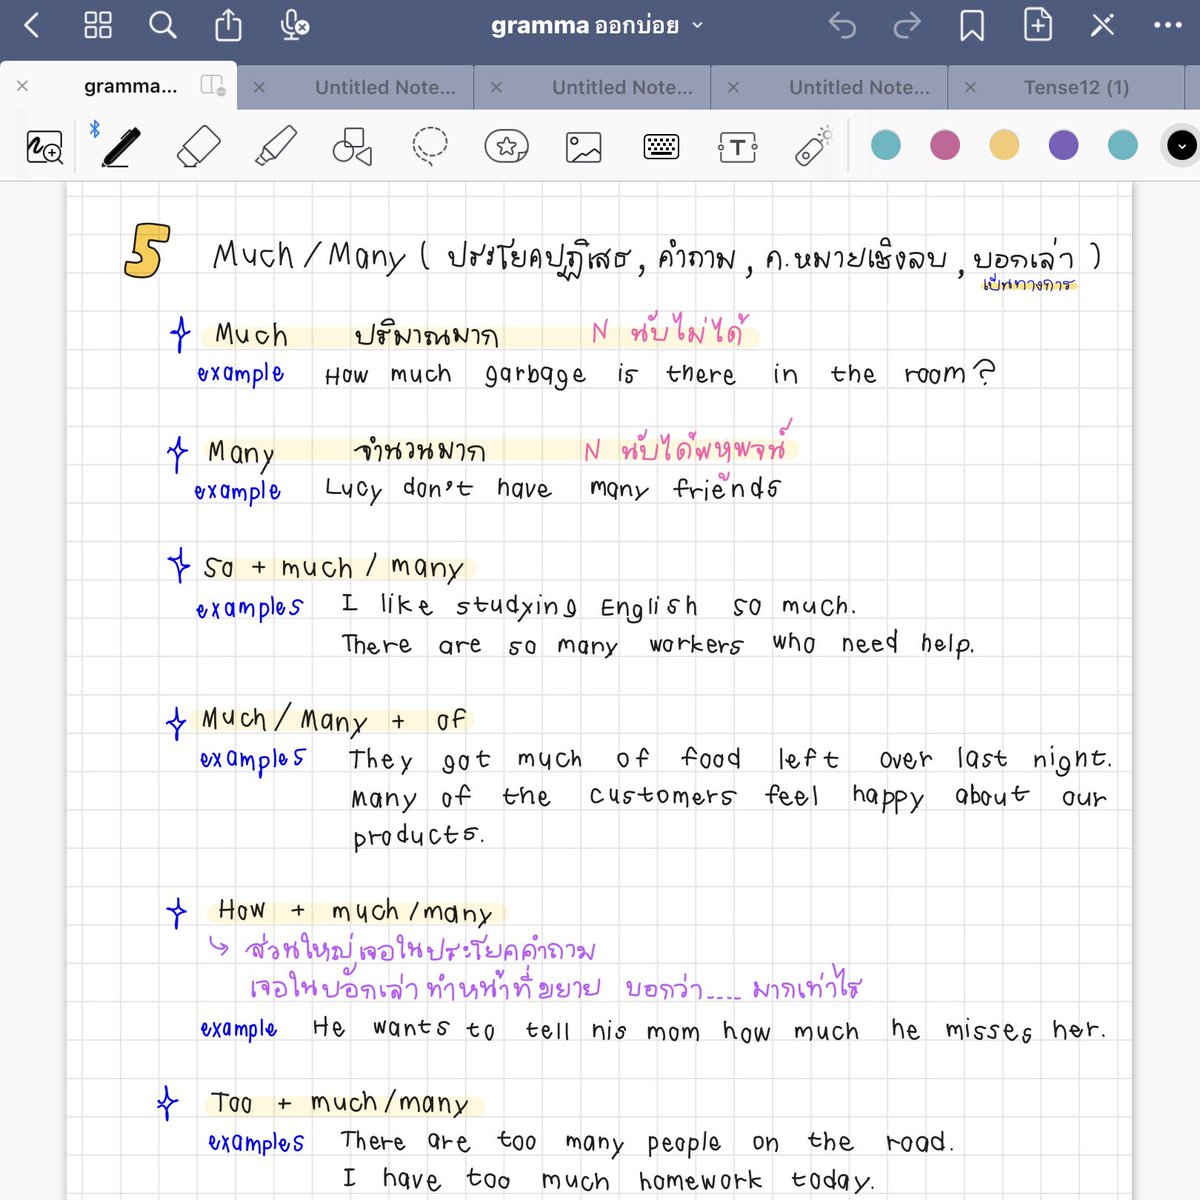 gramma ออกบ่อย
gramma...
Untitled Note...
Untitled Note...
Untitled Note...
Tense12 (1)
5 Much / Many ( ประโยคปฏิเสธ , คำถาม , ค.หมายเชิงลบ , บอกเล่า )
เป็นทางการ
Much ปริมาณมาก N นับไม่ได้
example How much garbage is there in the room?
Many จำนวนมาก N นับได้พหูพจน์
example Lucy don't have many friends
So + much / many
examples I like studying English so much.
There are so many workers who need help.
Much / Many + of
examples They got much of food left over last night.
Many of the customers feel happy about our
products.
How + much / many
↳ ส่วนใหญ่เจอในประโยคคำถาม
เจอในบอกเล่า ทำหน้าที่ขยาย บอกว่า..... มากเท่าไร
example He wants to tell his mom how much he misses her.
Too + much / many
examples There are too many people on the road.
I have too much homework today.